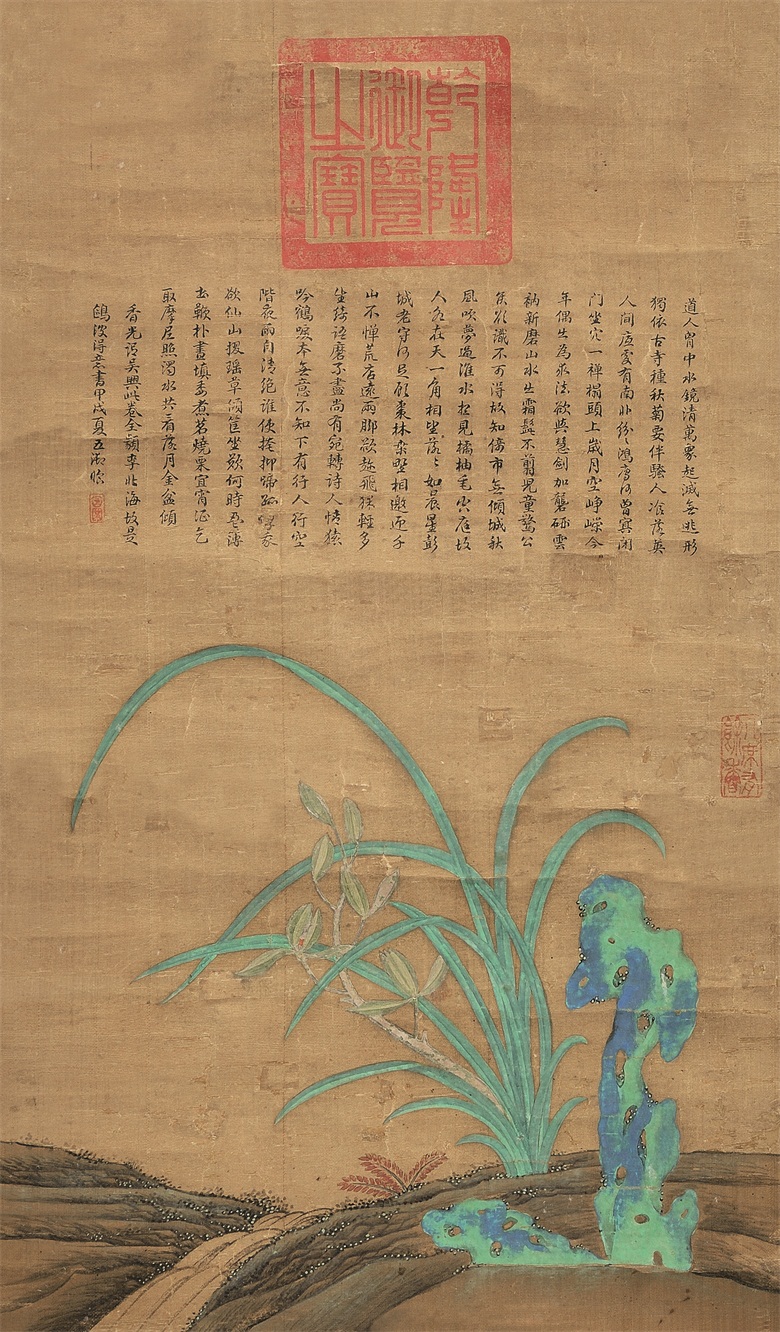 乾隆
御覽
之寶
道人胷中水鏡清萬象起滅無逃形
獨依古寺種秋菊要伴騷人飡落英
人間底處有南北紛〻鴻雁何曾冥閉
門坐穴一禪榻頭上歲月空崢嶸今
年偶出為求法欲與慧劍加礱硎雲
衲新磨山水出霜髭不剪兒童驚公
侯欲識不可得故知倚市無傾城秋
風吹夢過淮水想見橘柚垂空庭故
人各在天一角相望落〻如晨星彭
城老守何足顧棗林桑野相邀迎千
山不憚荒店遠兩腳欲趂飛猱輕多
生綺語磨不盡尚有宛轉詩人情猿
吟鶴唳本無意不知下有行人行空
階夜雨自清絕誰使掩抑啼孤惸我
欲仙山掇瑤草傾筐坐歎何時盈薄
書鞭朴晝填委煮茗燒栗宜宵征乞
取摩尼照濁水共看落月金盆傾
香光謂吳興此卷全類李北海故是
鷗波得意書甲戌夏五